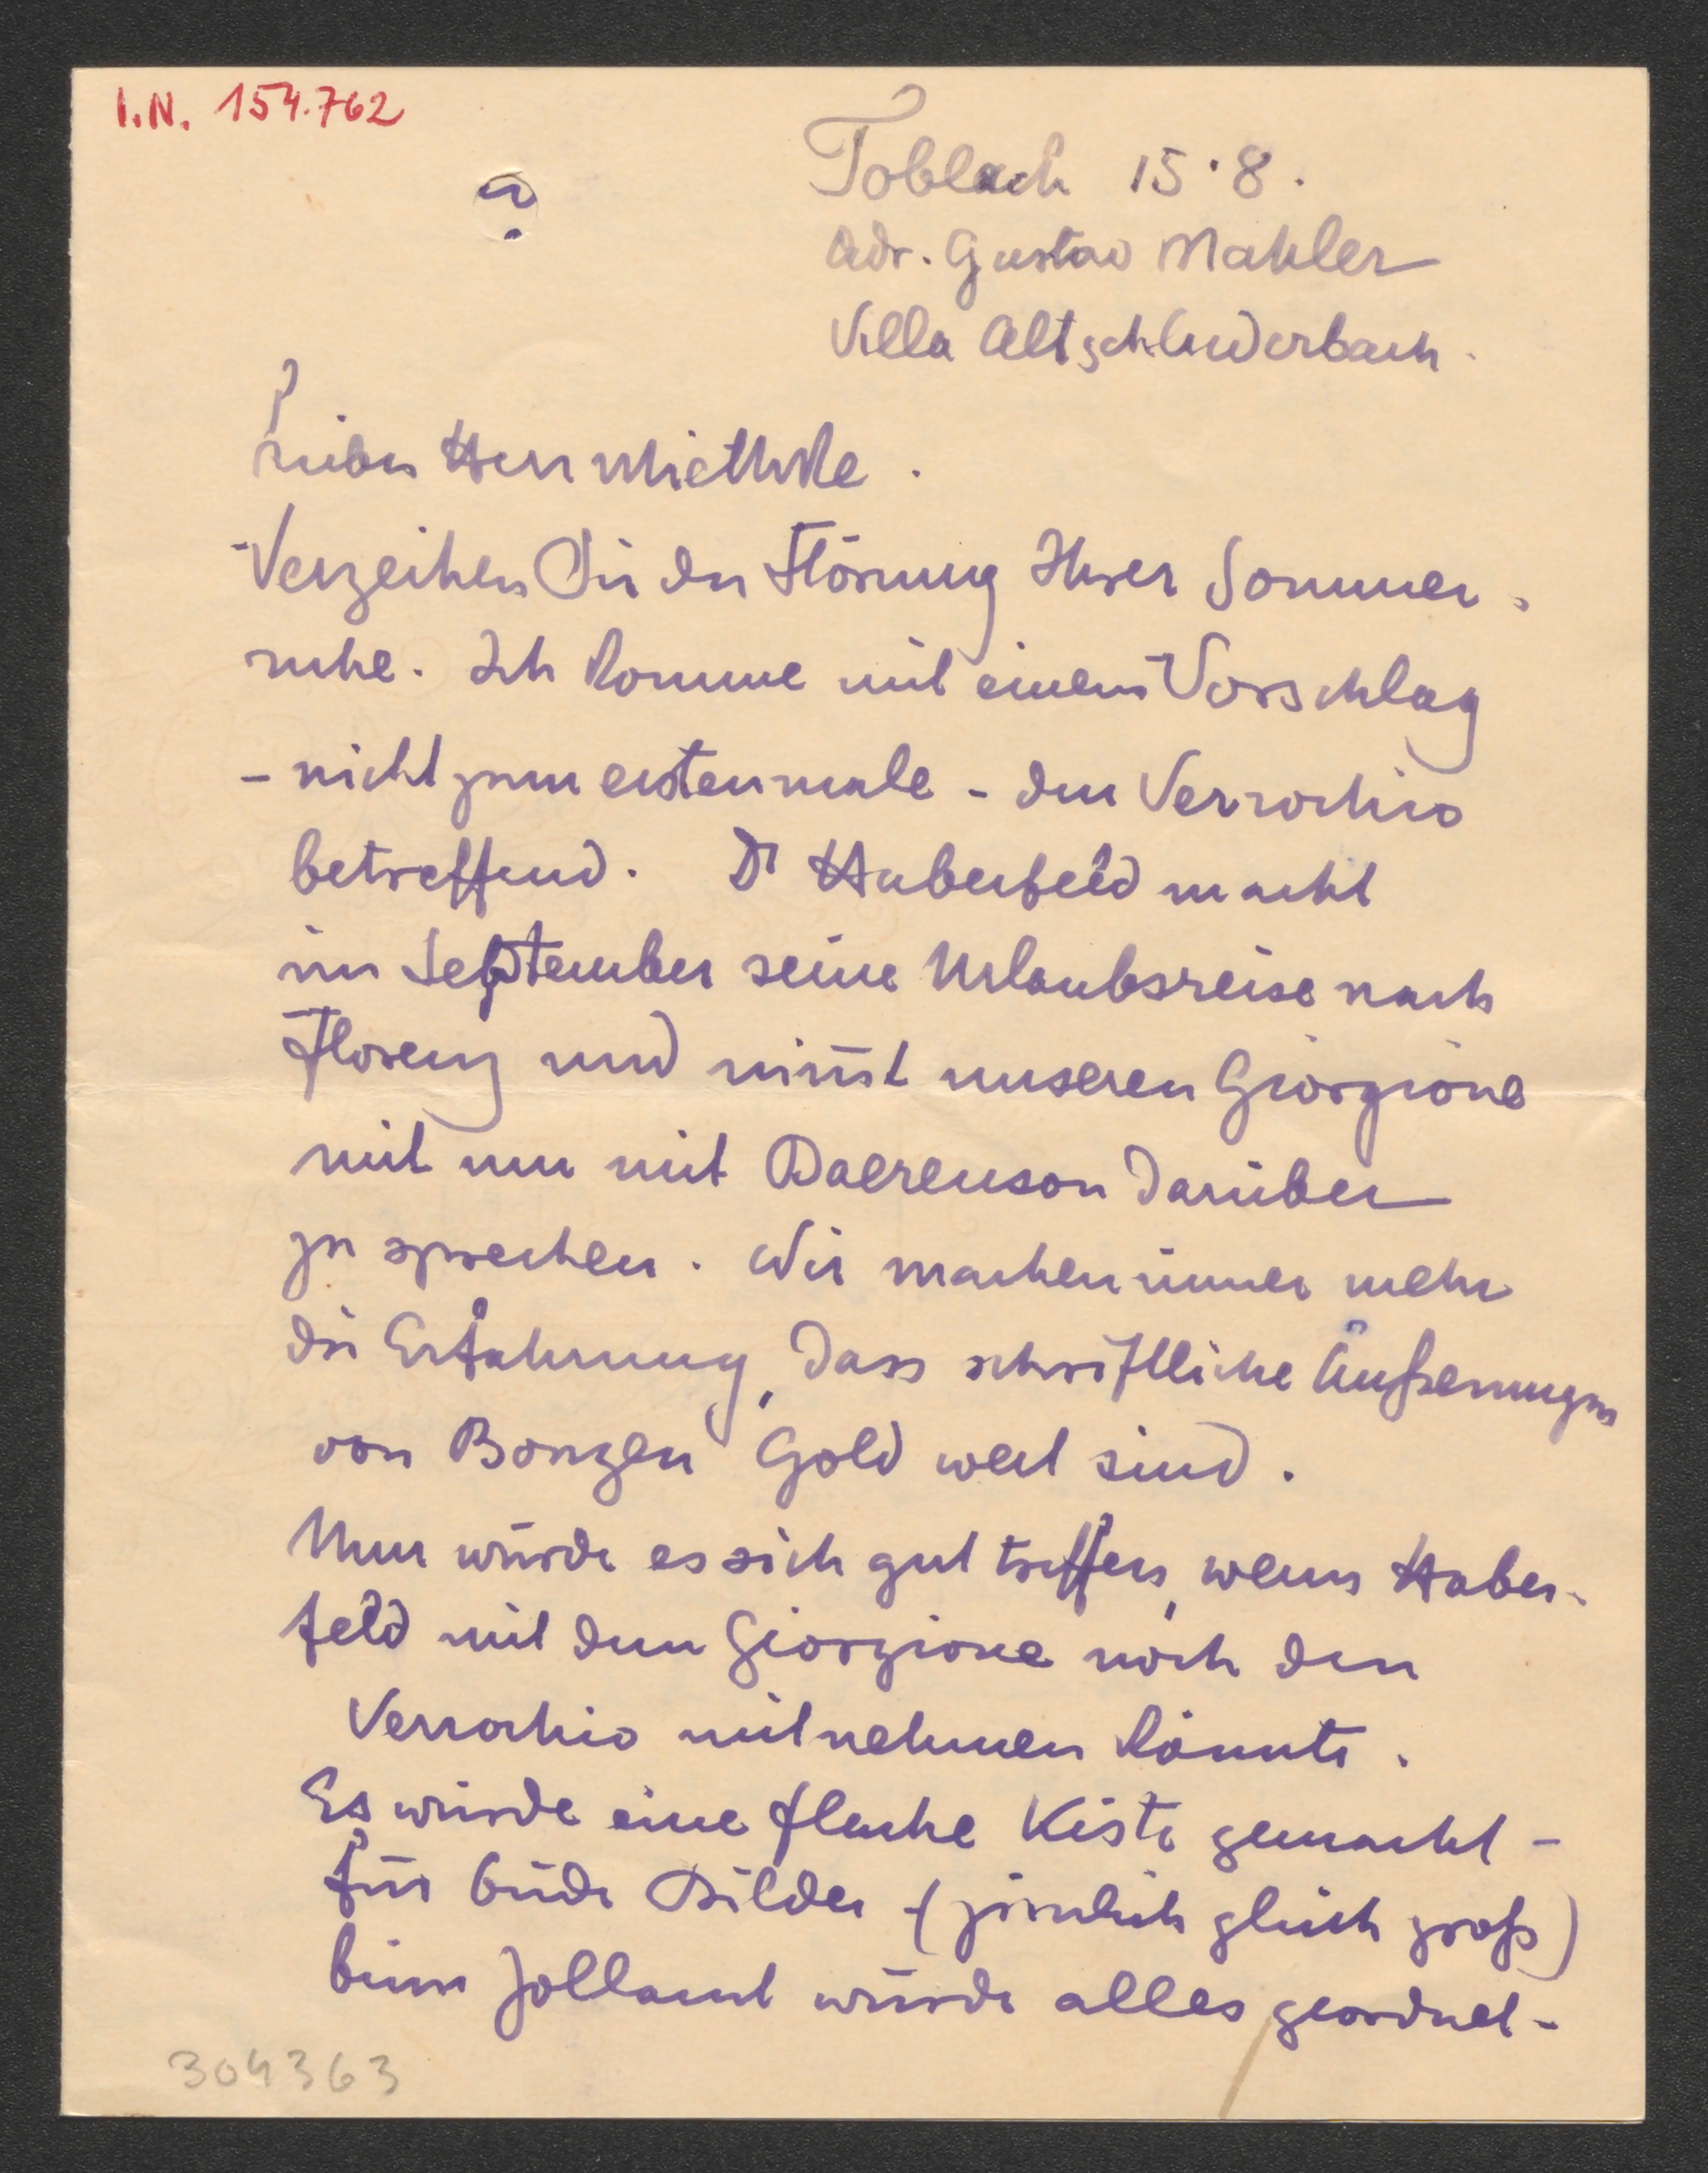 I.N. 154.762
Toblach 15.8.
Adr. Gustav Mahler
Villa Altschluderbach.
Lieber Herr Miethke.
Verzeihen Sie die Störung Ihrer Sommer-
ruhe. Ich komme mit einem Vorschlag
- nicht zum erstenmale - den Verrochio
betreffend. Dr Haberfeld macht
im September seine Urlaubsreise nach
Florenz und nim̅t unseren Giorgione
mit um mit Baerenson darüber
zu sprechen. Wir machen immer mehr
die Erfahrung, dass schriftliche Äußerungen
von Bonzen Gold wert sind.
Nun würde es sich gut treffen, wenn Haber-
feld mit dem Giorgione noch den
Verrochio mitnehmen könnte.
Es würde eine flache Kiste gemacht -
für beide Bilder (ziemlich gleich groß)
beim Zollamt würde alles geordnet -
304363